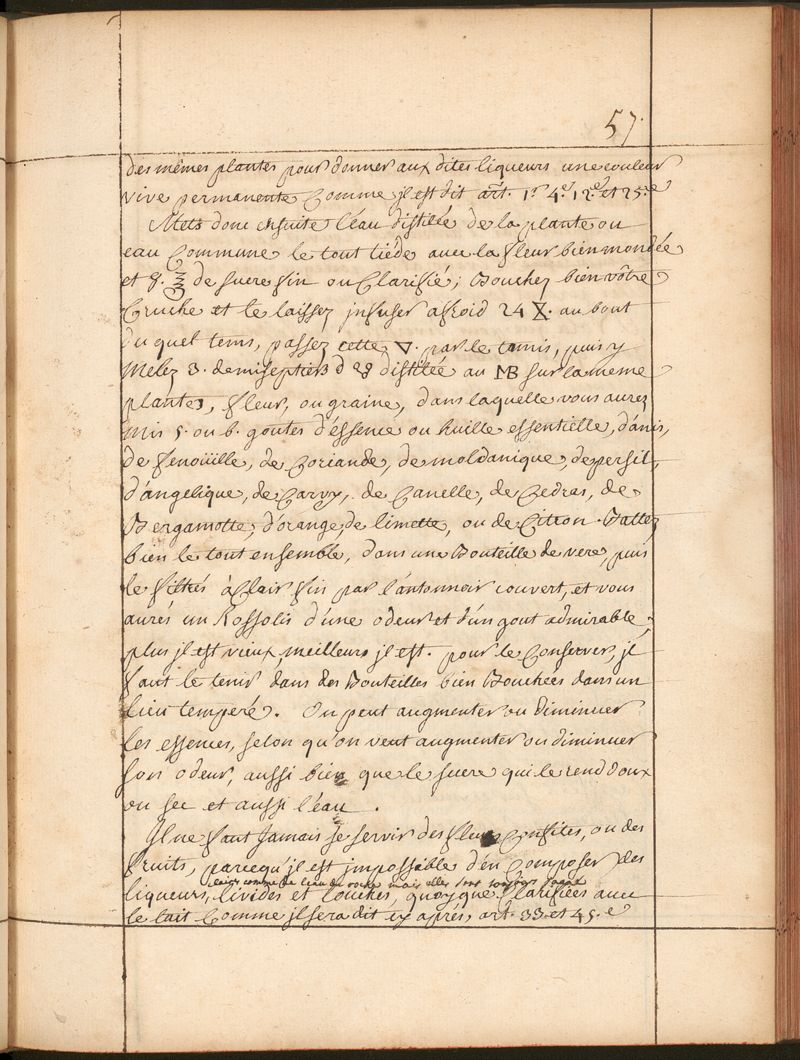 57.
des mêmes plantes pour donner aux dites liqueurs une couleur
vive permanente Comme jl est dit art. 1.er 4.e 12.e et 25.e
Mets donc ensuite l'eau distilée de la plante ou
eau Commune le tout tiede avec la fleur bien mondée
et 8. ℥ de sucre fin ou Clarifié; Bouchez bien vôtre
Cruche et le laissez jnfuser afroid 24 au bout
du quel tems, passez cette 🜄. par le tamis, puis y
Melez 3. demiseptiers d distilée au MB sur la même
plantes, fleur, ou graine, dans laquelle vous aurez
mis 5. ou 6. goutes d'éssence ou huille essentielle, d'ánis,
de fenoüille, de Coriande, de moldanique, de persil,
d'ángelique, de Carvy, de Canelle, de Cedras, de
Bergamotte, d'orange, de limette, ou de Citron. Battez
bien le tout ensemble, dans une Bouteille de vere, puis
le filtrés à Clair fin par l'antonnoir couvert, et vous
aurés un Rossolis d'úne odeur et d'ún gout admirable,
plus jl est vieux, meilleurs jl est. pour le Conserver, jl
faut le tenir dans des Bouteilles bien Bouchées dans un
lieu temperé. On peut augmenter ou diminuer
les essences, selon qu'on veut augmenter ou diminuer
son odeur, aussi bien que le sucre qui le rend doux
ou sec et aussi l'éau.
Jl ne faut Jamais se servir des fleurs Confites, ou des
fruits, parcequ'jl est jmpossible d'én Composer des
clairs comme de l'eau de roche mais elles sont toujours
liqueurs, livides et louches, quoyque Clarifiées avec
le lait Comme jl sera dit cy aprés, art. 33. et 45.e